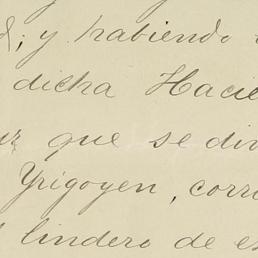 ; y habiendo
dicha Hacie
que se div
Yrigoyen, corri
lindero de es